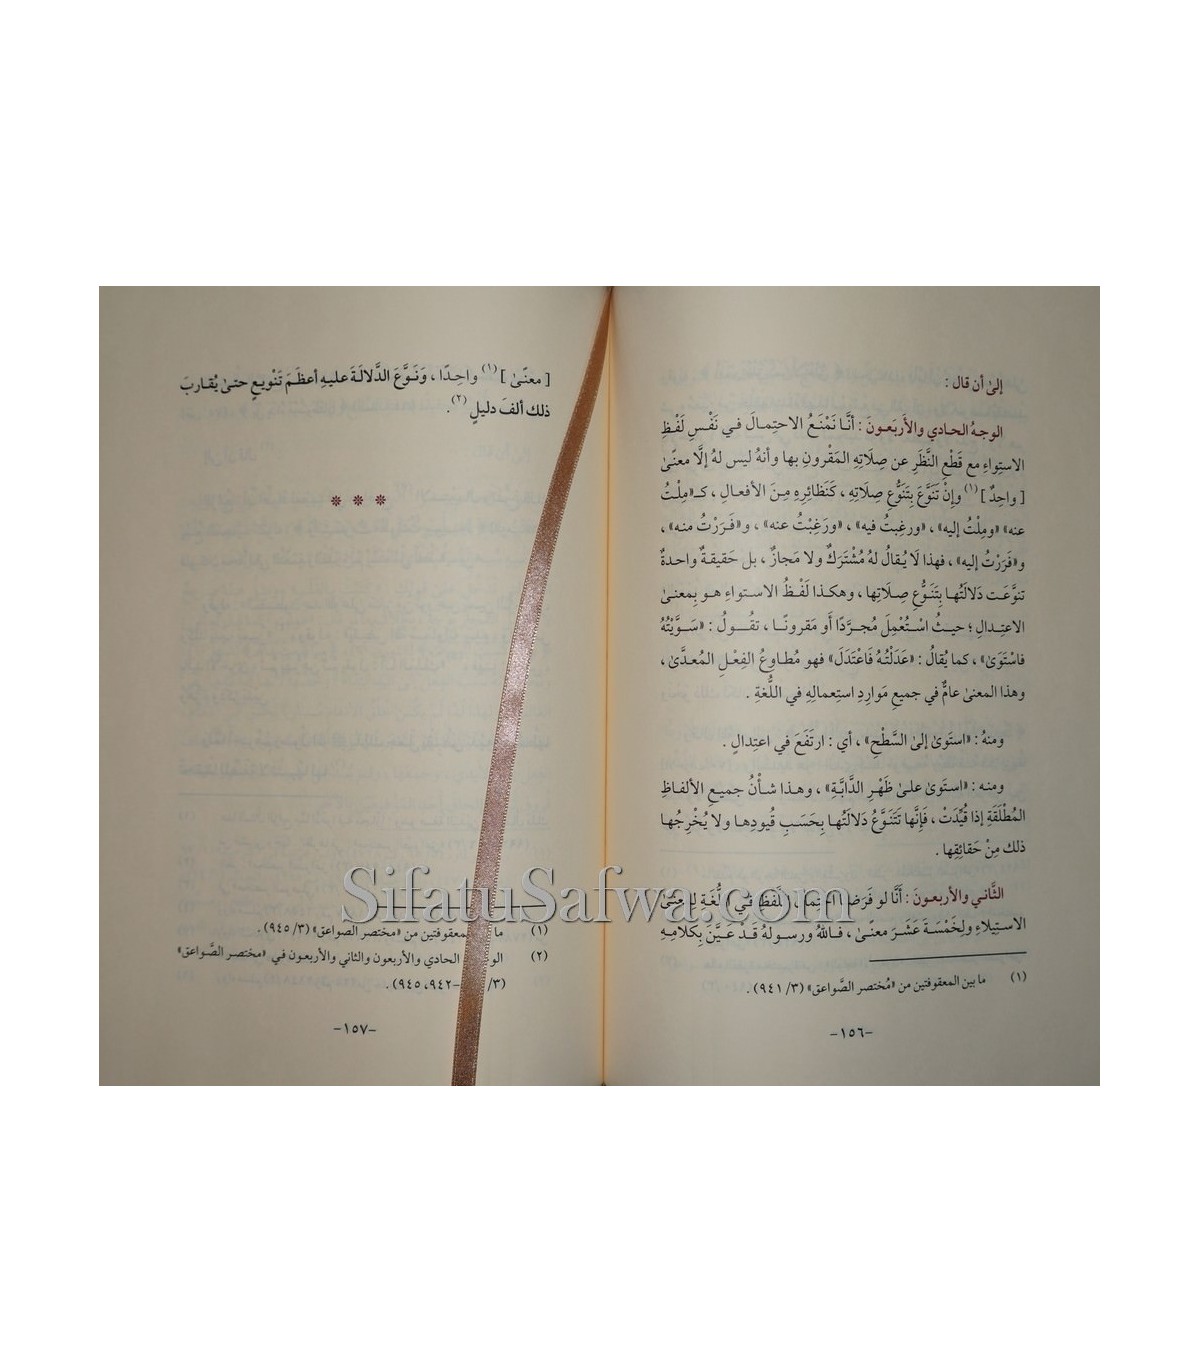 إلىٰ أن قال :
الوجهُ الحادي والأربَعـونَ : أنَّـا نَمْنَـعُ الاحتِمـالَ فـي نَفْـسِ لَفْـظِ
الاستِواءِ مع قَطْعِ النَّظَرِ عن صِلَاتِهِ المَقْرونِ بها وأنهُ ليس لهُ إلَّا معنًىٰ
[ واحِدٌ ] (١) وإنْ تَنَوَّعَ بِتَنَوُّعِ صِلَاتِهِ ، كَنَظائِرِهِ مِـنَ الأفعـالِ ، كـ«مِلْتُ
عنه» «ومِلْتُ إليه» ، «ورغِبتُ فيه» ، «ورَغِبْتُ عنه» ، و«فَـرَرْتُ منه» ،
و«فَرَرْتُ إليه» ، فهذا لَا يُقالُ لهُ مُشْتَرَكٌ ولا مَجازٌ ، بل حَقيقـةٌ واحـدةٌ
تنوَّعَـت دَلَالَتُهـا بِتَنَـوُّعِ صِلَاتِها ، وهكـذا لَفْـظُ الاسـتواءِ هـو بِمعنـىٰ
الاعتِـدالِ ؛ حيـثُ اسْتُعْمِلَ مُجـرَّدًا أَو مَقرونًـا ، تقُـولُ : «سَـوَّيْتُهُ
فاسْتَوَىٰ» ، كما يُقالُ : «عَدَلْتُهُ فَاعْتَدَلَ» فهو مُطاوِعُ الفِعْـلِ المُعـدَّىٰ ،
وهذا المعنىٰ عامٌّ في جميعِ مَوارِدِ استِعمالِهِ في اللُّغةِ .
ومنهُ : «استَوىٰ إلىٰ السَّطْحِ» ، أي : ارتَفَعَ في اعتِدالٍ .
ومنـه : «استوىٰ علىٰ ظَهْـرِ الدَّابَّـةِ» ، وهـذا شـأْنُ جميـعِ الألفـاظِ
المُطْلَقَةِ إذا قُيِّدَتْ ، فَإِنَّها تَتَنَوَّعُ دَلالَتُها بِحَسَبِ قُيودِهـا ولا يُخْرِجُها
ذلك مِنْ حَقائِقِها .
الثَّاني والأربعـونَ : أنَّا لو فَرَضْنا احتِمالَ اللَّفظِ في اللُّغَةِ لِمعنىٰ
الاسـتِيلاءِ ولِخَمْسَةَ عَشَـرَ معنًـى ، فـاللهُ ورسـولهُ قَـدْ عَيَّـنَ بِكلامِـهِ
(١) ما بين المعقوفتين من «مُختصر الصَّواعق» (٣/ ٩٤١) .
-١٥٦-
[ معنًىٰ ] (١) واحِـدًا ، وَنَـوَّعَ الدَّلالَـةَ عليـهِ أعظَـمَ تَنْويـعٍ حتـىٰ يُقـاربَ
ذلك ألفَ دليلٍ (٢) .
* * *
SifatuSafwa.com
(١) ما المعقوفتين من «مختصر الصواعق» (٣/ ٩٤٥) .
(٢) الحادي والأربعون والثاني والأربعون في «مختصر الصَّواعق»
(٣/ -٩٤٢، ٩٤٥) .
-١٥٧-